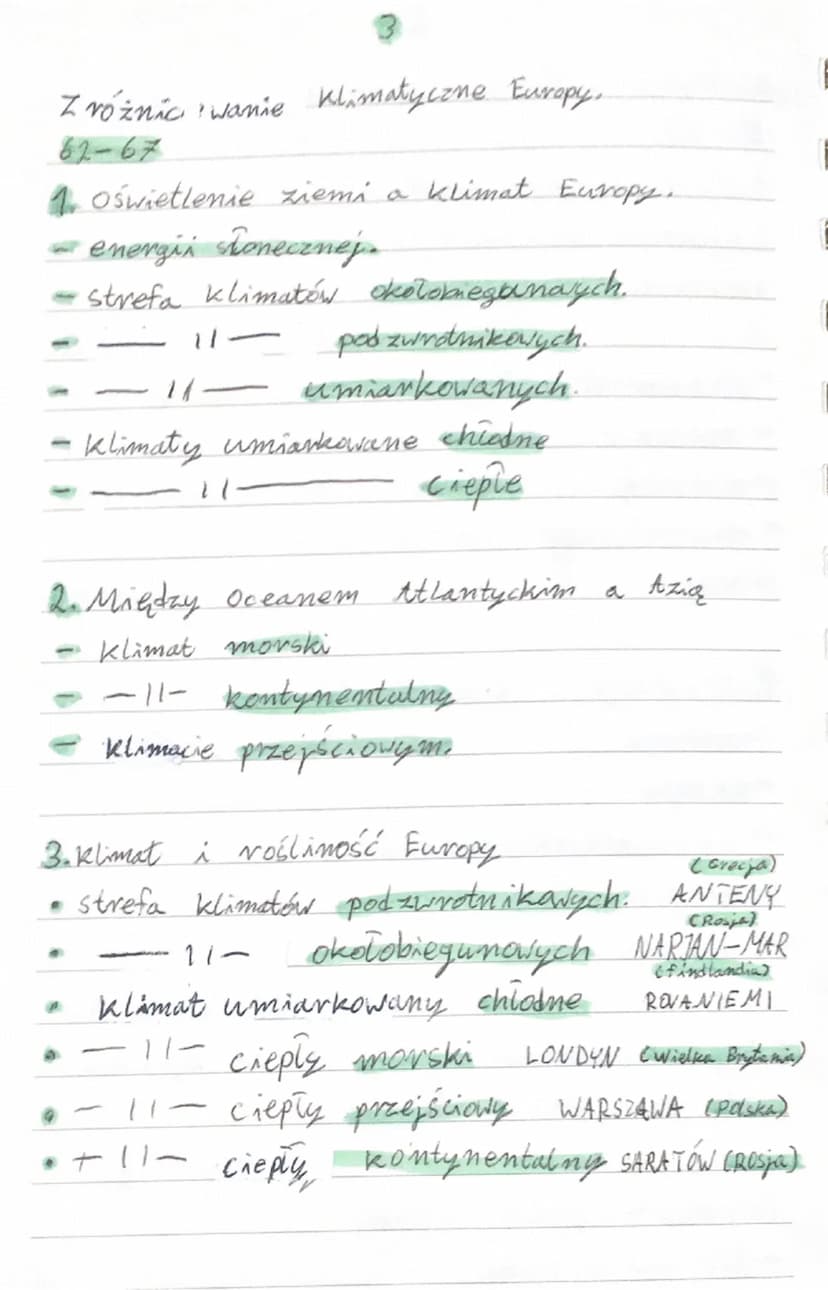 3
Zróżnic wanie klimatyczne Europy.
62-67
1. Oświetlenie ziemi a klimat Europy.
- energii słonecznej.
- strefa klimatów okołobiegunowych.
- — 11 — podzwrotnikowych.
- — 11 — umiarkowanych.
- klimaty umiarkowane chłodne
- — 11 — ciepłe
2. Między Oceanem Atlantyckim a Azią
- klimat morski
- — 11 - kontynentalny
- klimacie przejściowym.
3. klimat i rośliność Europy
(Grecja)
• strefa klimatów podzwrotnikowych. ANTENY
(Rosja)
• — 11 — okołobiegunowych NARJAN-MAR
(findlandia)
• klimat umiarkowany chłodne ROVANIEMI
• — 11 — ciepły morski LONDYN (Wielka Brytania)
• — 11 — ciepły przejściowy WARSZAWA (Polska)
• — 11 — ciepły, kontynentalny SARATÓW (Rosja)